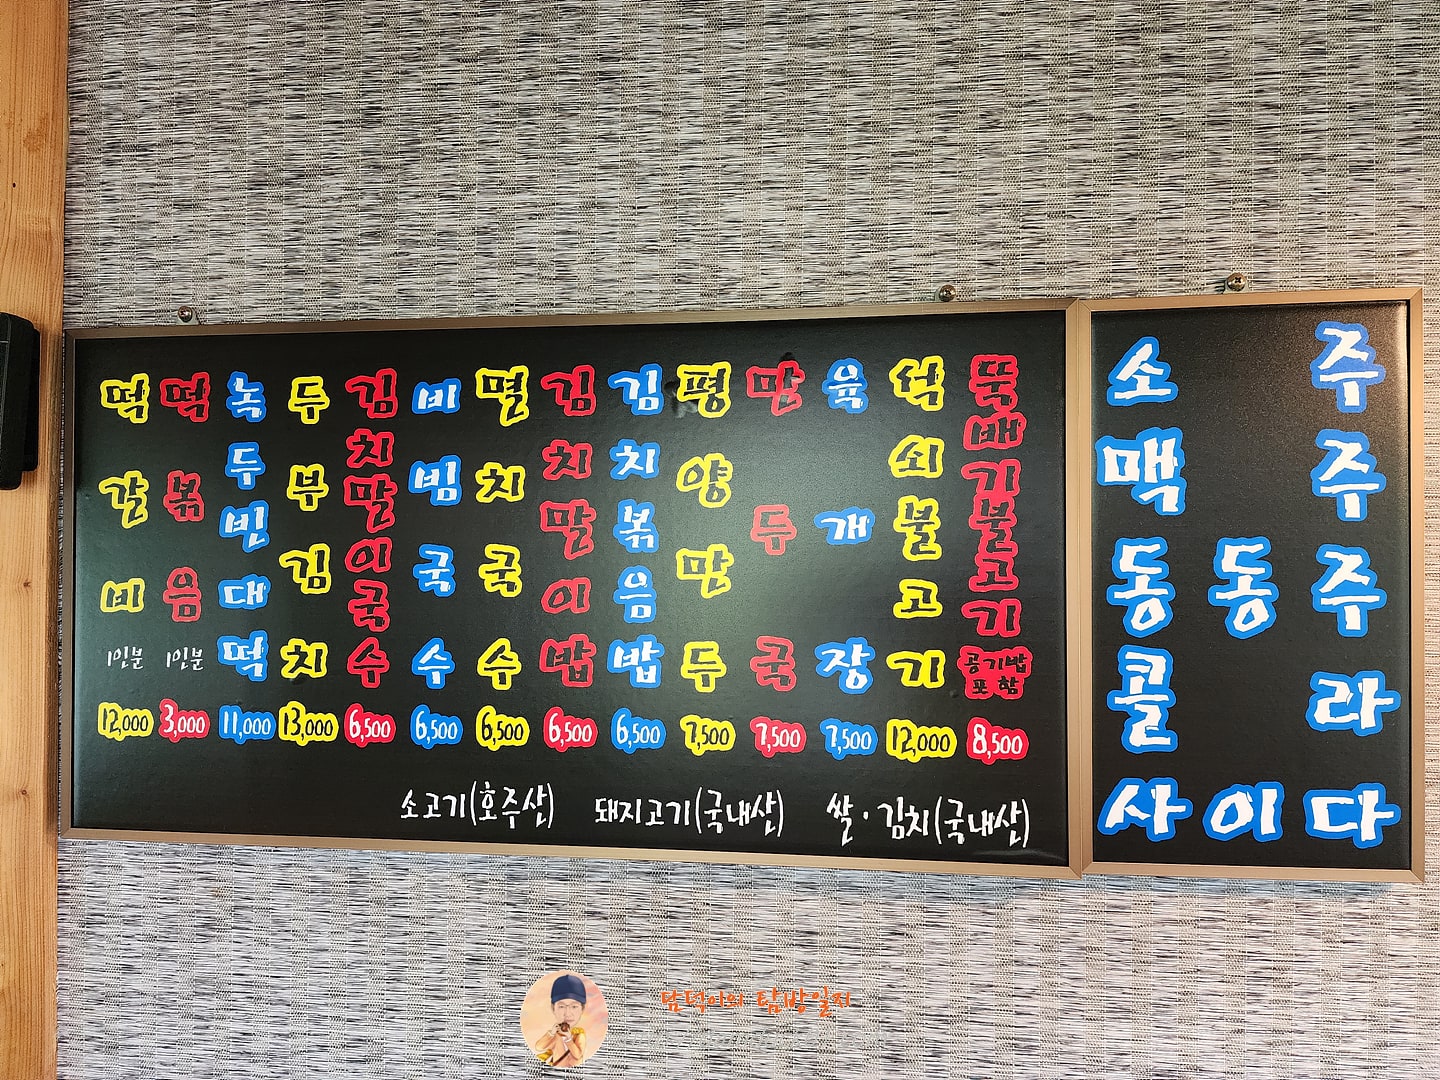 떡갈비 1인분 12,000
떡볶음 1인분 3,000
녹두빈대떡 11,000
두부김치 13,000
김치말이국수 6,500
비빔국수 6,500
멸치국수 6,500
김치말이밥 6,500
김치볶음밥 6,500
평양만두 7,500
만두국 7,500
육개장 7,500
석쇠불고기 12,000
뚝배기불고기 공기밥포함 8,500
소고기(호주산) 돼지고기(국내산) 쌀·김치(국내산)
소주
맥주
동동주
콜라
사이다
담덕이의 탐방일지